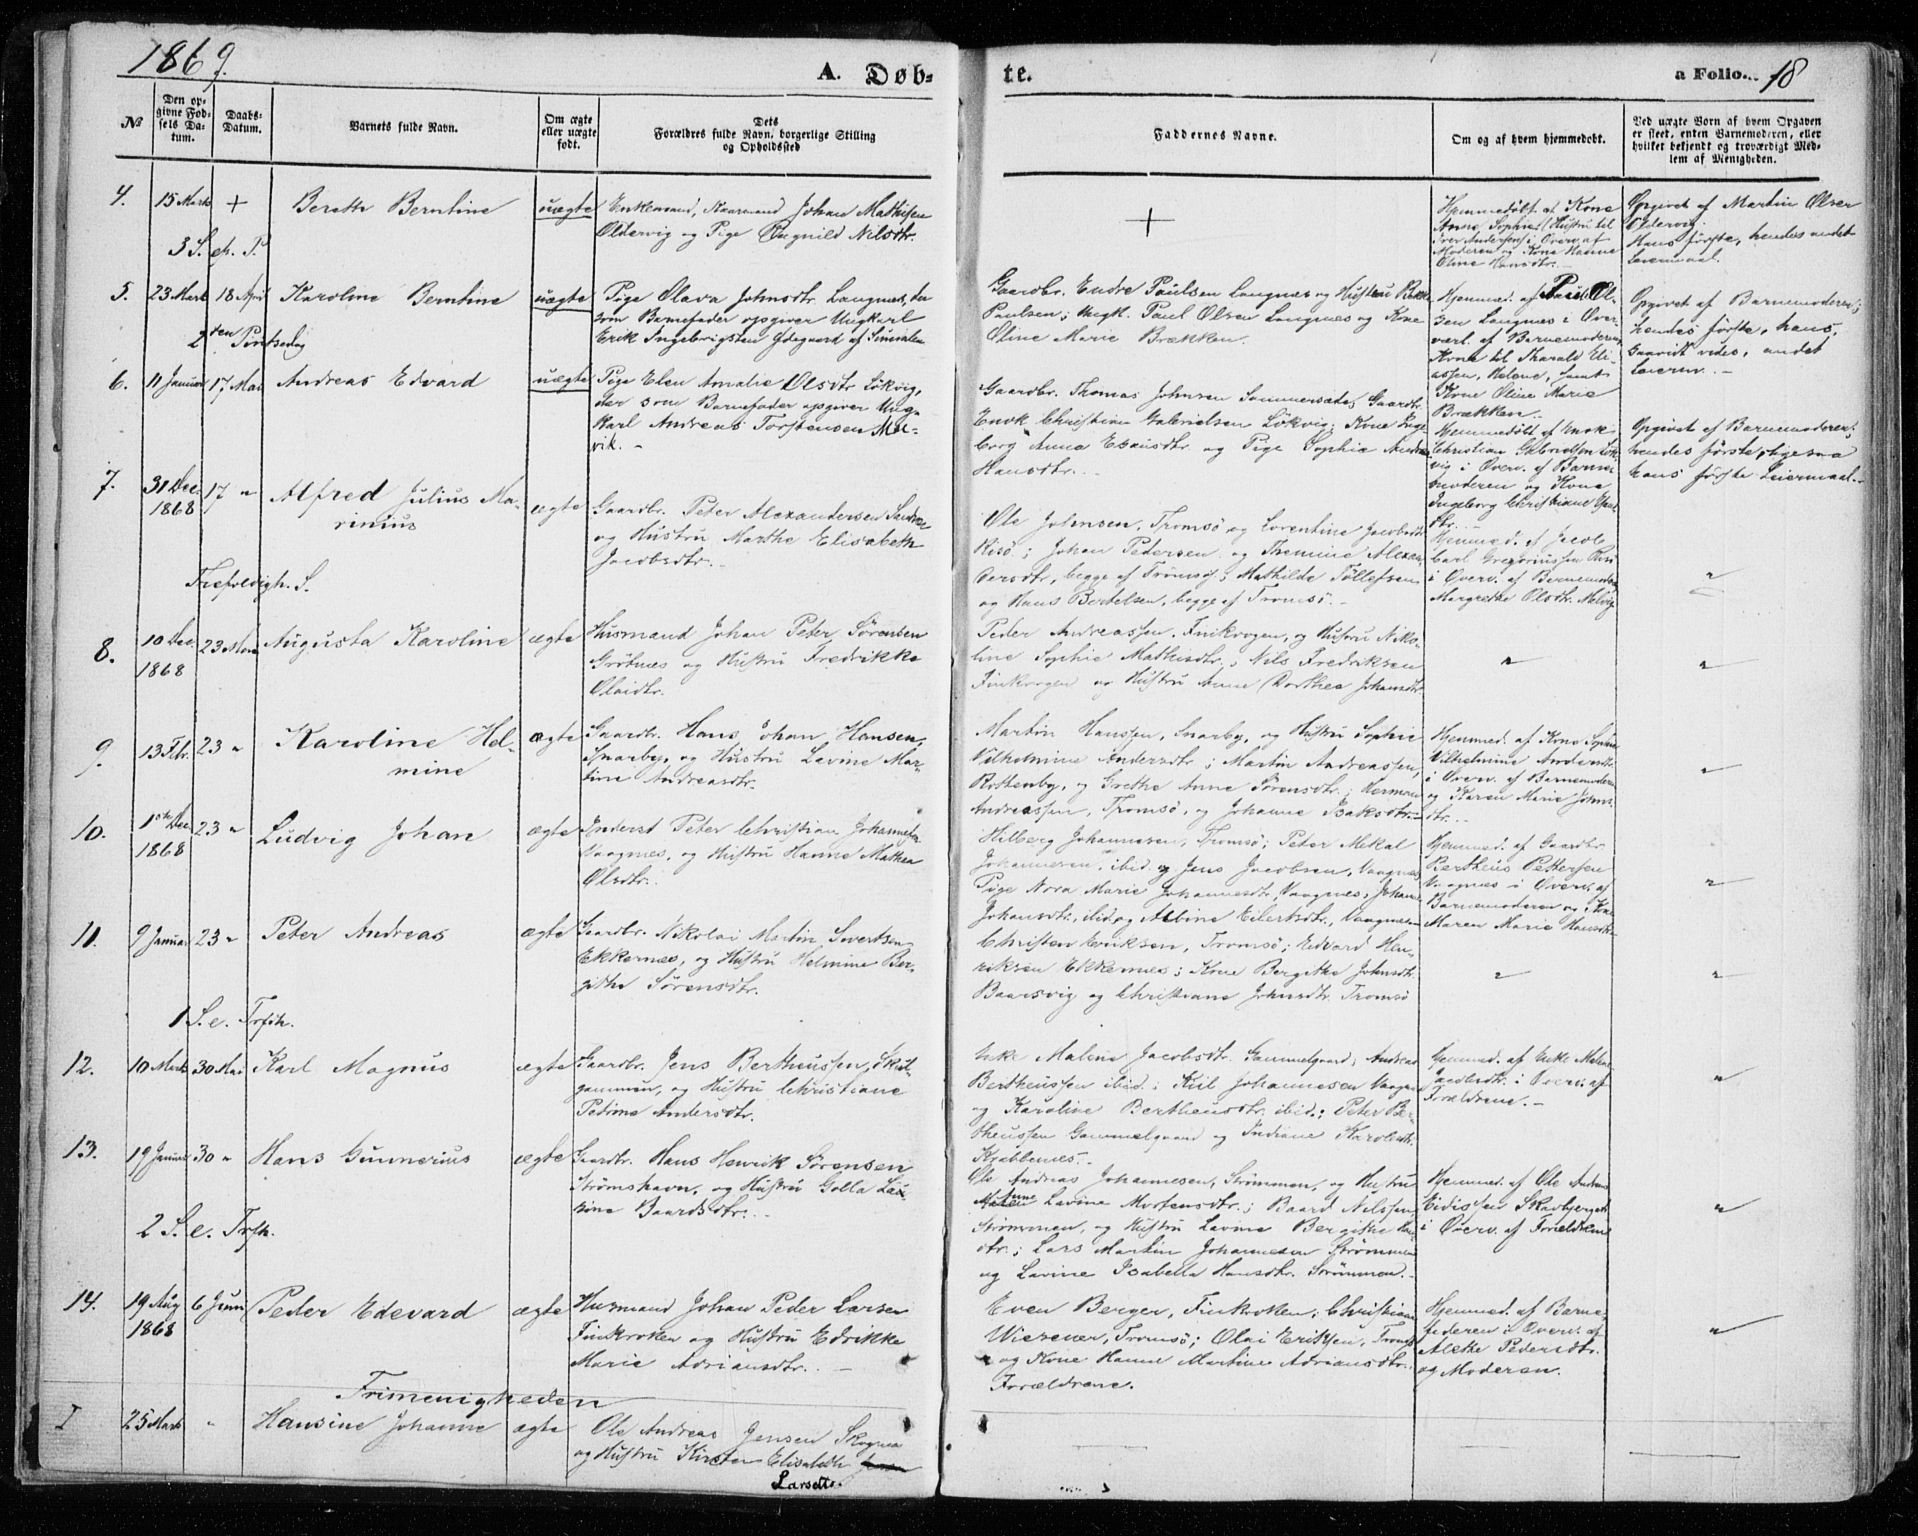 1869.
A. Døb-
te.
a Folio... 18
№
Den op-
givne Fød-
sels Da-
tum.
Daabs-
Datum.
Barnets fulde Navn.
Om ægte
eller uægte
født.
Dets
Forældres fulde Navn, borgerlige Stilling
og Opholdssted
Faddernes Navne.
Om og af hvem hjemmedøbt.
Ved uægte Børn af hvem Opgaven
er skeet, enten Barnemoderen, eller
hvilket bekjendt og troværdigt Med-
lem af Menigheden.
4.
15 Marts
+
Berette Berntine
uægte
Enkemand, Johan Mathisen
Oldervig og Pige Nilsdtr.
+
Hjemmedøbt af Kone
Anne Sophie, Hustru til
Iver Andersen i Overv. af
Moderen og Kone Hanne
Oline Hansdtr.
Opgivet af Martin Olsen
Oldervig
Hans første, hendes andet
Leiermaal.
3 S. e. P.
5.
23 Marts
18 April
Karoline Berntine
uægte
Pige Olava Johnsdtr. Langnes, der
som Barnefader opgiver Ungkarl
Erik Ingebrigtsen Ødegaard af
Gaardbr. Endre Paulsen Langnes og Hustru
Paulsen; Ungk. Paul Olsen Langnes og Kone
Oline Marie Brækken.
Hjemmed. af Paul Ol-
sen Langnes i Over-
vær. af Barnemoderen,
Kone til Harald Eli-
assen, Helene, samt
Kone Oline Marie
Brækken.
Opgivet af Barnemoderen;
hendes første, hans,
saavidt vides, andet
Leierm.
2den Pintsedag
6.
11 Januar
17 Mai
Andreas Edvard
uægte
Pige Elen Amalie Olsdtr. Løkvig,
der som Barnefader opgiver Ung-
karl Andreas Torstensen Mel-
vik.
Gaardbr. Thomas Johnsen Sommersæter, Gaardbr.
Enok Christian Gabrielsen Løkvig; Kone Inge-
borg Anna Esaiasdtr. og Pige Sophie
Hansdtr.
Hjemmedøbt af Enok
Christian Gabrielsen Løk-
vig i Overv. af Barne-
moderen og Kone
Ingeborg Christiane
dtr.
Opgivet af Barnemoderen;
hendes første, ligesaa
hans første Leiermaal.
7.
31 Dec.
1868
17 "
Alfred Julius Ma-
rinius
ægte
Gaardbr. Peter Alexandersen
og Hustru Marthe Elisabeth
Jacobsdtr.
Ole Johnsen, Tromsø og Lorentine Jacobsdtr.
Risø; Johan Pedersen og Themine Alexan-
dersdtr., begge af Tromsø; Mathilde Tollefsen
og Hans Bertelsen, begge af Tromsø.
Hjemmed. af Jacob
Carl Gregoriussen Risø
i Overv. af Barnemoderen,
Margrethe Olsdtr. Melvig
"
Trefoldigh. S.
8.
10 Dec.
1868
23 Mai
Augusta Karoline
ægte
Husmand Johan Peter Sørensen
Grøtnes og Hustru Fredrikke
Olaidtr.
Peder Andreassen, Finkrogen, og Hustru Niko-
line Sophie Mathisdtr.; Nils Fredriksen
Finkrogen og Hustru Anne Dorthea Johansdtr.
"
"
9.
13 Febr.
23 "
Karoline Hel-
mine
ægte
Gaardbr. Hans Johan Hansen,
Snarby, og Hustru Lavine Mar-
tine Andreasdtr.
Martin Hanssen, Snarby, og Hustru Sophie
Vilhelmine Andersdtr.; Martin Andreassen,
Rottenby, og Grethe Anne Sørensdtr.; Herman
Andreassen, Tromsø, og Johanne Isaksdtr.
Hjemmed. af Kone Sophie
Vilhelmine Andersdtr.
i Overv. af Barnemoderen
og Karen Marie Johns-
dtr.
"
10.
1ste Dec
1868
23 "
Ludvig Johan
ægte
Inderst Peter Christian Johannesen
Vaagnes, og Hustru Hanne Mathea
Olsdtr.
Hilberg Johannesen, Tromsø; Peter Mekal
Johannesen, ibid. og Jens Jacobsen, Vaagnes;
Pige Nora Marie Johannesdtr. Vaagnes; Johanne
Johansdtr., ibid. og Albine Eilertsdtr., Vaagnes
Hjemmed. af Gaardbr.
Bertheus Pettersen
Vaagnes i Overv. af
Barnemoderen og Kone
Maren Marie Hansdtr.
"
11.
9 Januar
23 "
Peter Andreas
ægte
Gaardbr. Nikolai Martin Sivertsen
Ekkernes, og Hustru Helmine Ber-
githe Sørensdtr.
Christen Eriksen, Tromsø; Edvard Hen-
riksen Ekkernes; Kone Bergithe Johnsdtr.
Baarsvig og Christiane Johnsdtr. Tromsø
"
"
1 S. e. Trfh.
12.
10 Marts
30 Mai
Karl Magnus
ægte
Gaardbr. Jens Bertheussen, Skul-
gammen, og Hustru Christiane
Petrine Andersdtr.
Enke Malene Jacobsdtr. Gammelgaard; Andreas
Bertheussen ibid.; Kiil Johannesen Vaagnes
og Karoline Bertheusdtr. ibid.; Peter Ber-
theussen Gammelgaard og Indiane Karolusdtr.
Krabbenes.
Hjemmed. af Enke Malene
Jacobsdtr. i Overv. af
Forældrene.
"
13.
19 Januar
30 "
Hans Gunnerius
ægte
Gaardbr. Hans Henrik Sørensen
Strømshavn, og Hustru Golla
Baardsdtr.
Ole Andreas Johannesen, Strømmen, og Hustru
Anne Lavine Mortensdtr.; Baard Nilssen
Strømmen, og Hustru Lavine Bergithe
dtr.; Lars Martin Johannesen Strømmen
og Lavine Isabella Hansdtr. Strømmen.
Hjemmed. af Ole Andreas
Eidissen Skavbjerget
i Overv. af Forældrene
"
2 S. e. Trfh.
14.
19 Aug
1868
6 Juni
Peder Edevard
ægte
Husmand Johan Peder Larsen
Finkroken og Hustru Edrikke
Marie Adriansdtr.
Even Berger, Finkroken; Christiane
Wiesener, Tromsø; Olai Eriksen, Tromsø
og Kone Hanne Martine Adriansdtr.
Forældrene.
Hjemmed. af Barne-
faderen i Overv. af
Alethe Pedersdtr.
og Moderen.
"
Frimenigheden
I
25 Marts
"
Hansine Johanne
ægte
Ole Andreas Jensen Skognes
og Hustru Kirsten Elisabeth
Larsdtr.